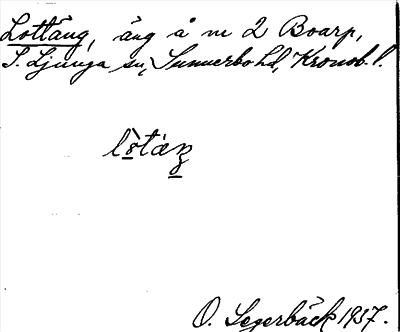 Lottäng, äng å nr 2 Boarp,
S. Ljunga sn, Sunnerbo hd, Kronob. l.
O. Segerbäck 1937.